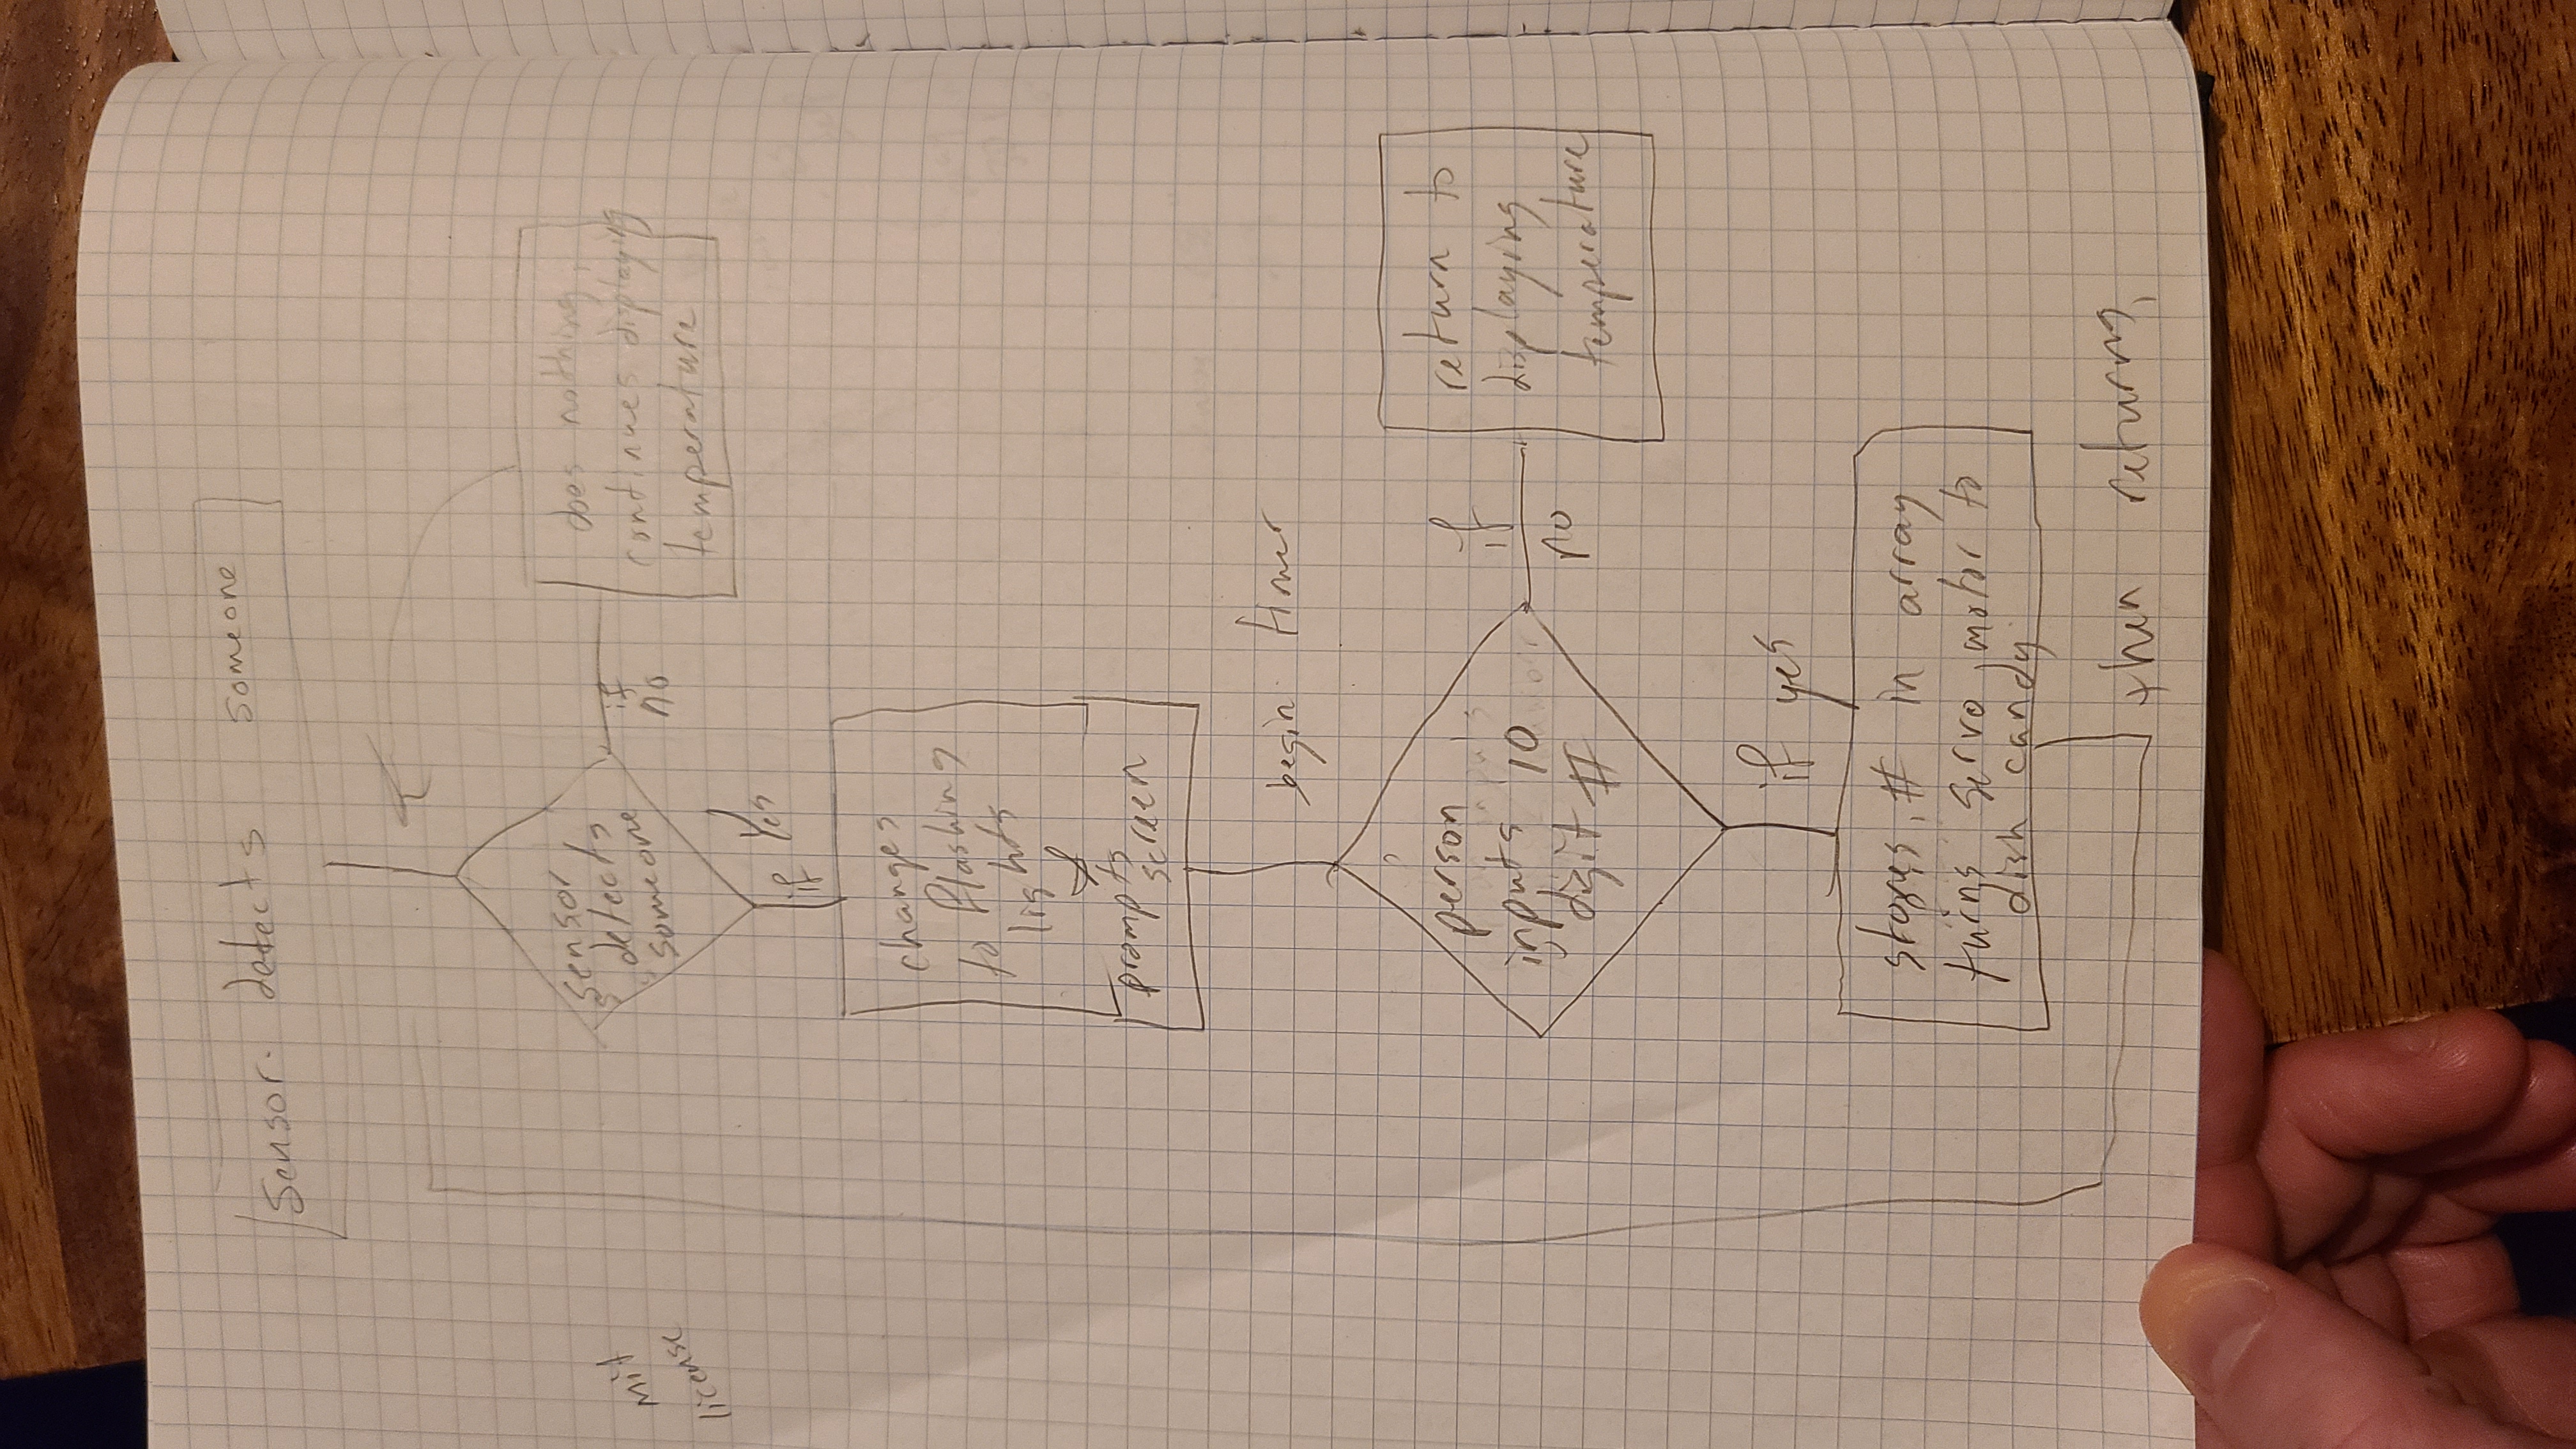 Sensor detects someone
sensor
detects
someone
if
no
does nothing,
continues displaying
temperature
mit
license
if Yes
changes
to flashing
lights
&
prompts
screen
begin timer
person
inputs 10
digit #
if
no
return to
displaying
temperature
if yes
stores # in array
turns servo motor to
dish candy
then returns